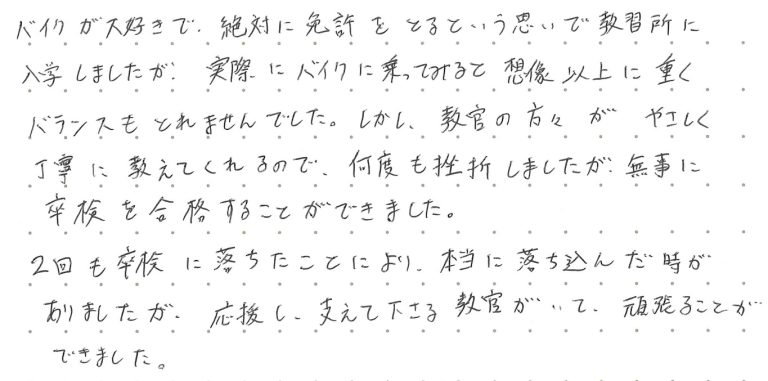 バイクが大好きで、絶対に免許をとるという思いで教習所に
入学しましたが、実際にバイクに乗ってみると想像以上に重く
バランスもとれませんでした。しかし、教官の方々がやさしく
丁寧に教えてくれるので、何度も挫折しましたが、無事に
卒検を合格することができました。
2回も卒検に落ちたことにより、本当に落ち込んだ時が
ありましたが、応援し、支えて下さる教官がいて、頑張ることが
できました。